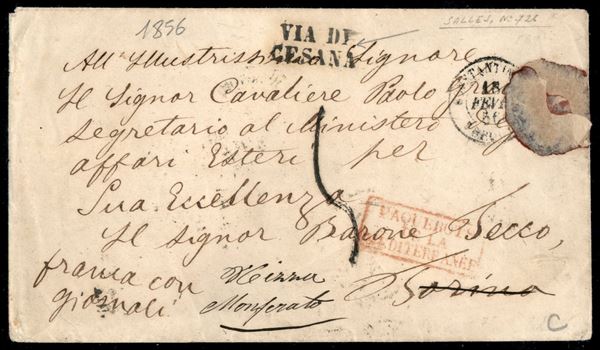 1856
SALLES, No 726
VIA DI
CESANA
All' Illustrissimo Signore
Il Signor Cavaliere Paolo
Segretario al Ministero
affari Esteri per
Sua Eccellenza
Il Signor Barone Tecco,
franca con
giornali
Nizza
Monferato
Torino
PAQUEBOTS
LA
MEDITERRANÉE
FEVR
56
5
C